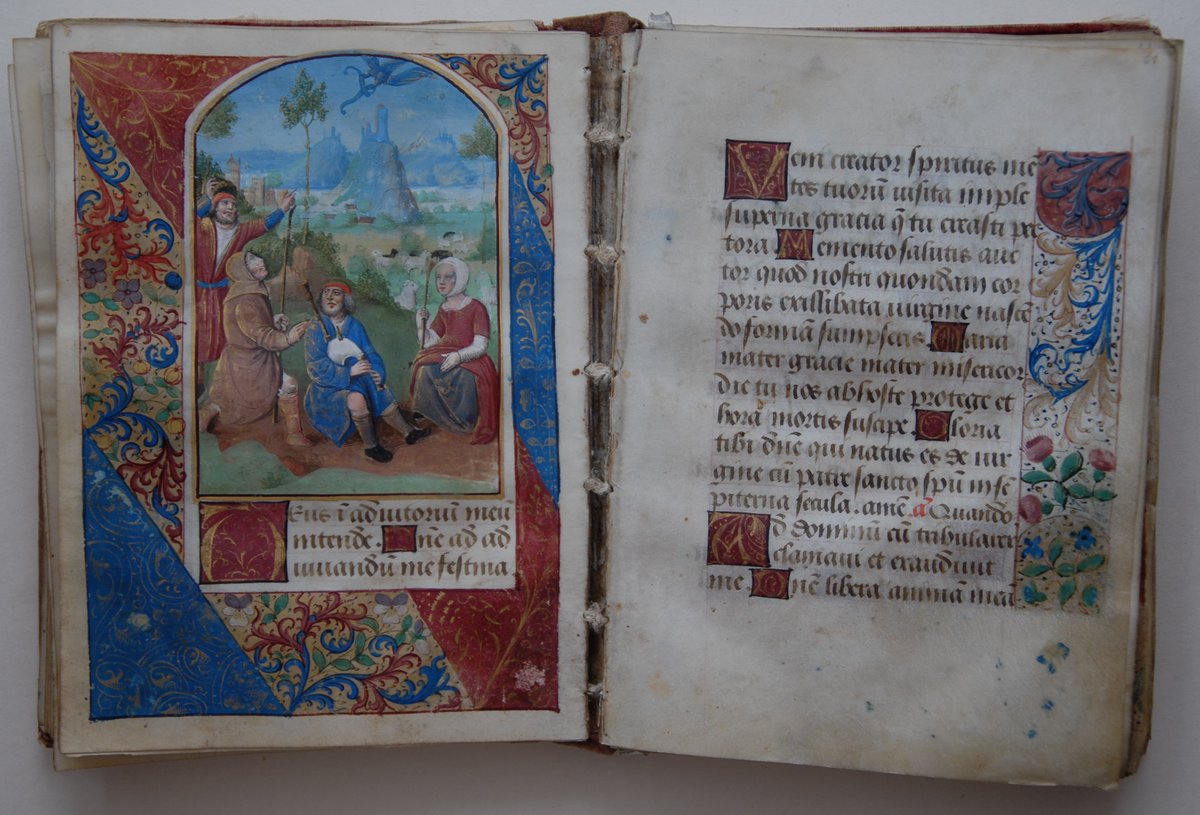 Deus ī adiutoriū meū
intende. Dne ad ad
iuuandū me festina
Veni creator spiritus mē
tes tuorū uisita imple
superna gracia q̄ tu creasti pec
tora Memento salutis auc
tor quod nostri quondam cor
poris ex illibata uirgine nascē
do formā sumpseris. Maria
mater gracie mater misericor
die tu nos ab hoste protege et
hora mortis suscipe. Gloria
tibi dn̄e qui natus es de uir
gine cū patre sancto spū in sē
piterna secula. amē. a. Quando
Ad dominū cū tribularer
clamaui et exaudiuit
me. Dn̄e libera animā meā